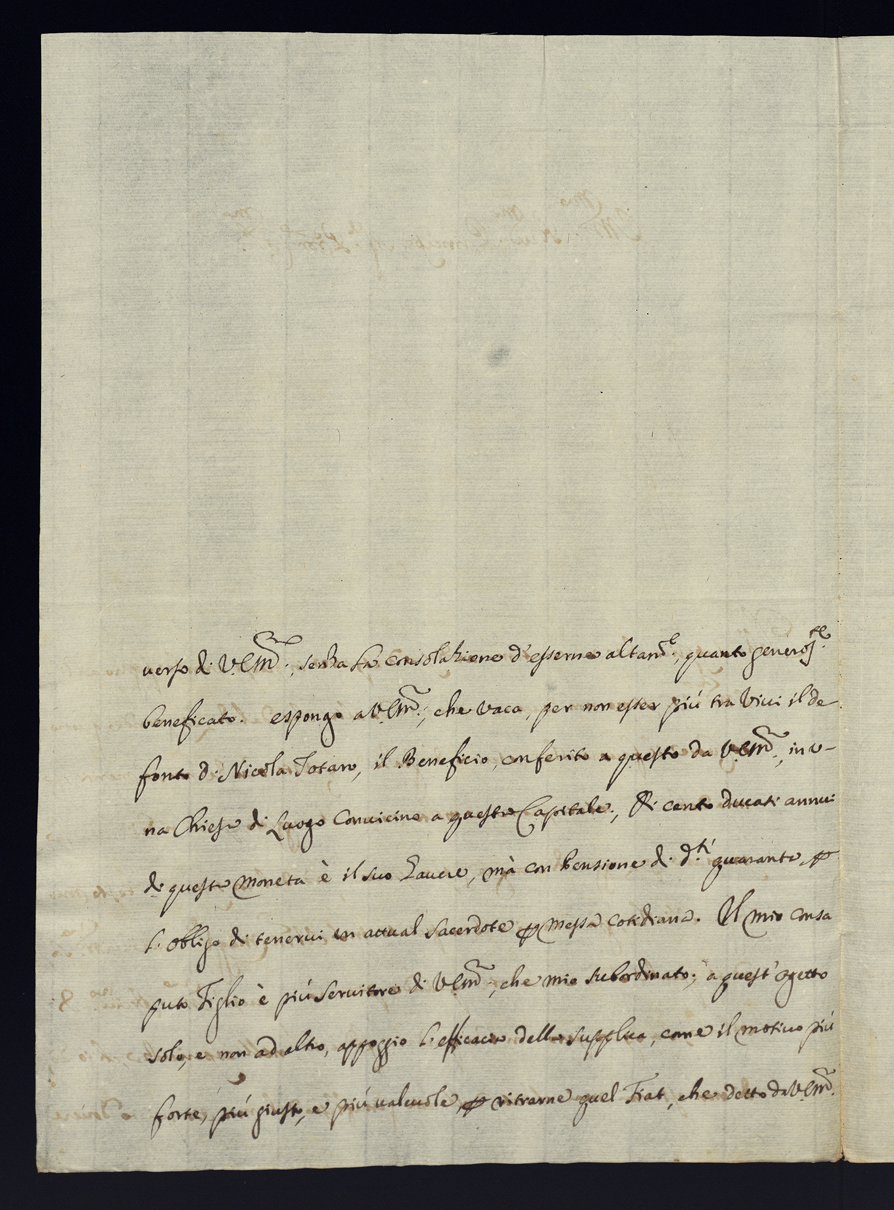 verso di V. Em.ª, senza la consolazione d'esserne altam.te, quanto generos.te
beneficato. espongo a V. Em.ª, che vaca, per non esser più tra Vivi il de-
fonto di Nicola Totaro, il Beneficio, conferito a questo da V. Em.ª, in u-
na Chiesa di Luogo Convicino a questa Capitale, Di cento ducati annui
di questa moneta è il suo havere, mà con Pensione di d.ti quaranta p
l'obligo di tenervi un actual Sacerdote p messa cotidiana. Il mio consa
puto Figlio è più Servitore di V. Em.ª, che mio subordinato; a quest'ogetto
solo, e non ad altro, appoggio l'efficacia della supplica, come il motivo più
forte, più giusto, e più valevole p ritrarne quel Fiat, che detto da V. Em.ª